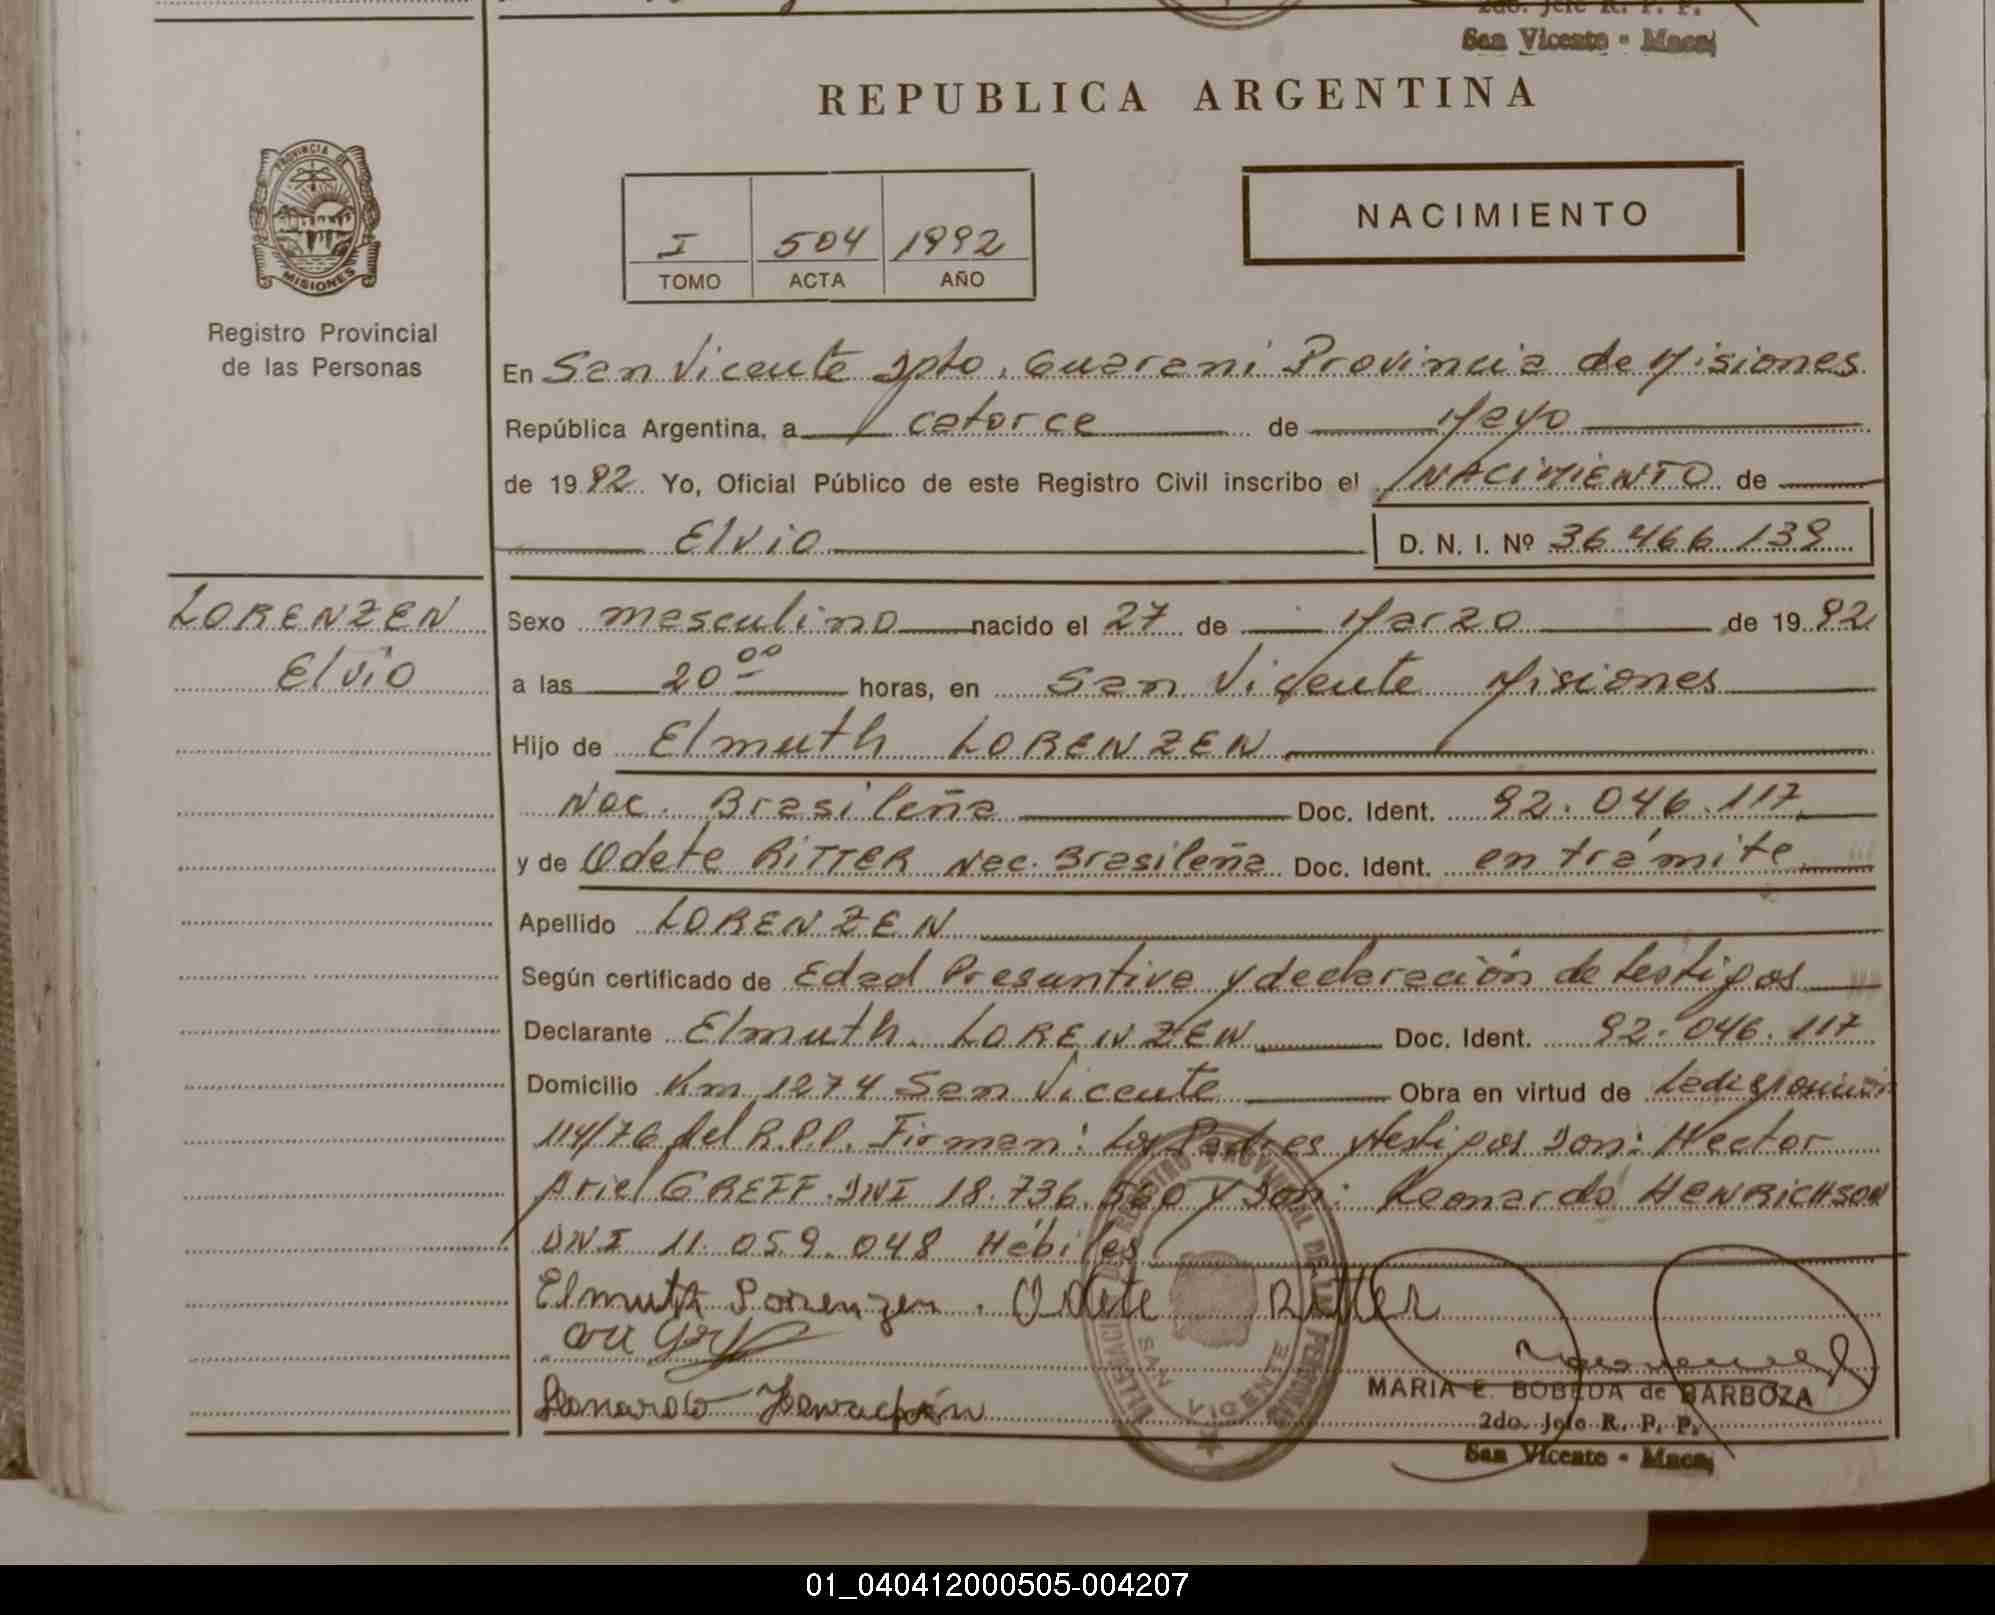 2do. Jefe R. P. P.
San Vicente - Mnes.
REPUBLICA ARGENTINA
PROVINCIA DE
MISIONES
Registro Provincial
de las Personas
I 504 1992
TOMO ACTA AÑO
NACIMIENTO
En San Vicente Dpto. Guarani Provincia de Misiones
República Argentina, a catorce de Mayo
de 1992 Yo, Oficial Público de este Registro Civil inscribo el NACIMIENTO de
Elvio D. N. I. Nº 36 466 139
LORENZEN
Elvio
Sexo masculino nacido el 27 de Marzo de 1992
a las 20 00 horas, en San Vicente Misiones
Hijo de Elmuth LORENZEN
Nac. Brasileña Doc. Ident. 92.046.117
y de Odete RITTER Nac. Brasileña Doc. Ident. en trámite
Apellido LORENZEN
Según certificado de Edad Presuntiva y declaración de testigos
Declarante Elmuth LORENZEN Doc. Ident. 92.046.117
Domicilio Km 1274 San Vicente Obra en virtud de La disposición
114/76 del R.P.P. Firman: Los Padres y testigos Don: Hector
Ariel GREFF DNI 18.736.560 y Don: Leonardo HENRICHSON
DNI 11.059.048 Hábiles
Elmuth Lorenzen. Odete Ritter
REGISTRO PROVINCIAL DE LAS PERSONAS
SAN VICENTE
MARIA E. BOBEDA de BARBOZA
2do. Jefe R. P. P.
San Vicente - Mnes.
01_040412000505-004207